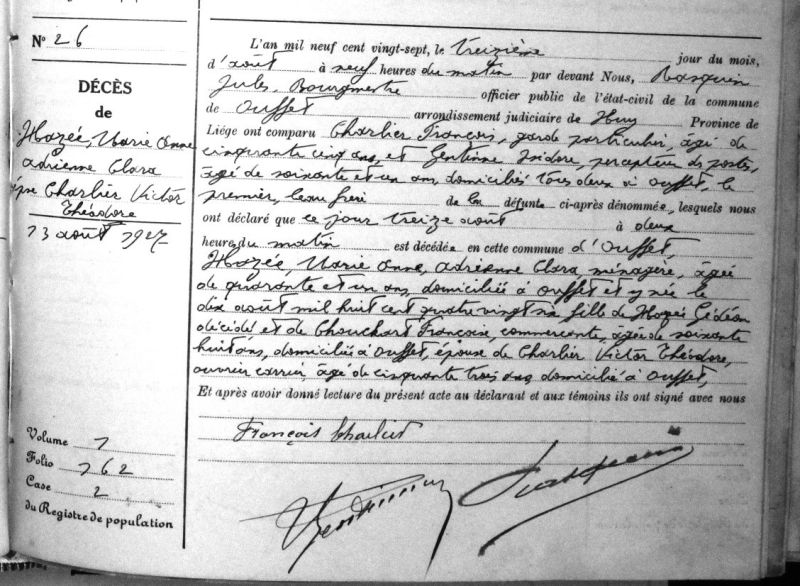 N° 26
DÉCÈS
de
Hazée, Marie Anne
Adrienne Clara
épse Charlier Victor
Théodore
13 août 1927
Volume 1
Folio 162
Case 2
du Registre de population
L'an mil neuf cent vingt-sept, le treizième jour du mois,
d'août à neuf heures du matin par devant Nous, Rasquin
Jules, Bourgmestre officier public de l'état-civil de la commune
de Ouffet arrondissement judiciaire de Huy Province de
Liége ont comparu Charlier François, garde particulier, âgé de
cinquante cinq ans, et Gentinne Isidore, percepteur des postes,
âgé de soixante et un ans, domiciliés tous deux à Ouffet, le
premier, beau frère de la défunte ci-après dénommée, lesquels nous
ont déclaré que ce jour treize août à deux
heures du matin est décédée en cette commune d'Ouffet,
Hazée, Marie Anne, Adrienne Clara, ménagère, âgée
de quarante et un ans, domiciliée à Ouffet et y née le
dix août mil huit cent quatre vingt six fille de Hazée Gédéon
décédé et de Chouchart Françoise, commerçante, âgée de soixante
huit ans, domiciliée à Ouffet, épouse de Charlier Victor Théodore,
ouvrier carrier, âgé de cinquante trois ans domicilié à Ouffet,
Et après avoir donné lecture du présent acte au déclarant et aux témoins ils ont signé avec nous
François Charlier
Gentinne
Rasquin